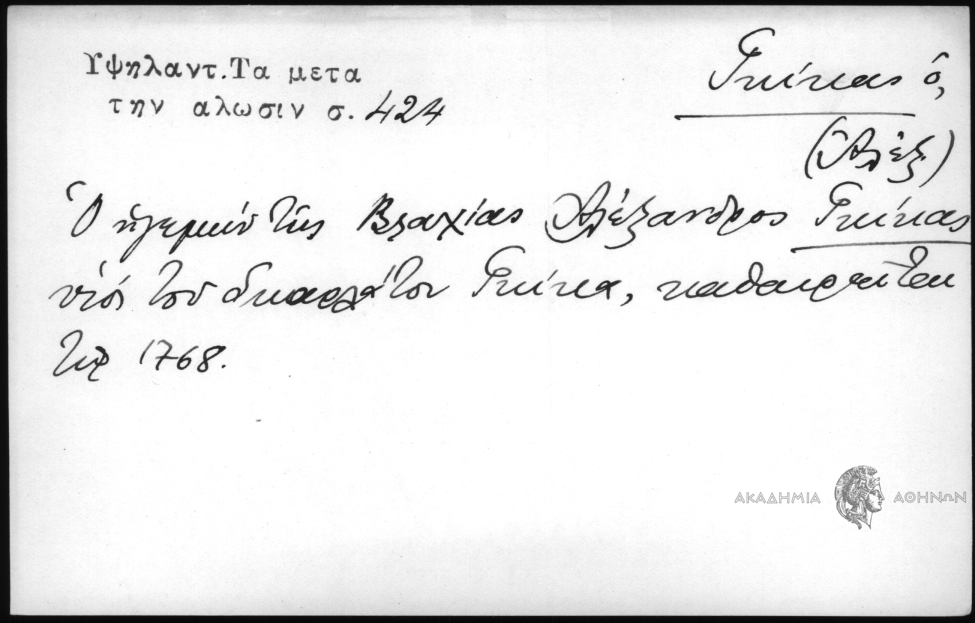 Υψηλαντ. Τα μετα
την αλωσιν σ. 424
Γκίκας ὁ,
(Ἀλέξ)
Ὁ ἡγεμὼν τῆς Βλαχίας Ἀλέξανδρος Γκίκας
υἱός τοῦ Σκαρλάτου Γκίκα, καθαιρεῖται
τῷ 1768.
ΑΚΑΔΗΜΙΑ ΑΘΗΝΩΝ